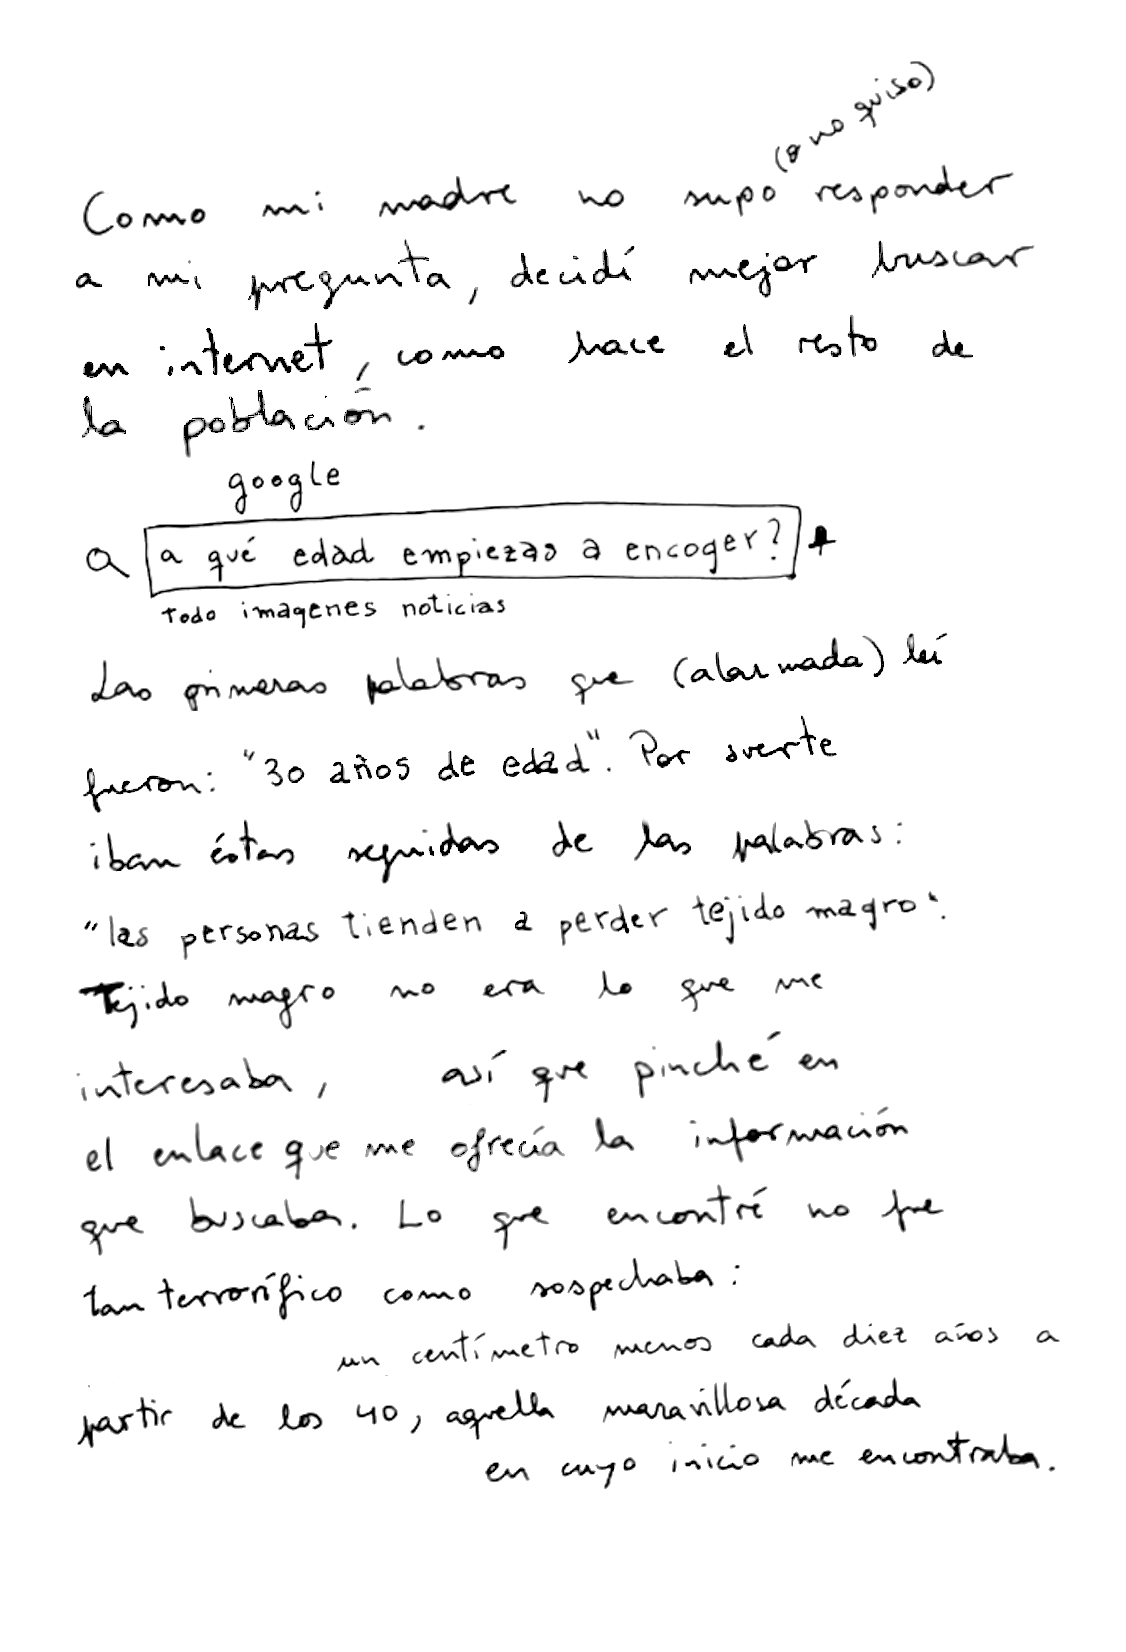 Como mi madre no supo (o no quiso) responder
a mi pregunta, decidí mejor buscar
en internet, como hace el resto de
la población.
google
a qué edad empiezas a encoger?
Todo imagenes noticias
Las primeras palabras que (alarmada) leí
fueron: "30 años de edad". Por suerte
iban éstas seguidas de las palabras:
"las personas tienden a perder tejido magro".
Tejido magro no era lo que me
interesaba, así que pinché en
el enlace que me ofrecía la información
que buscaba. Lo que encontré no fue
tan terrorífico como sospechaba:
un centímetro menos cada diez años a
partir de los 40, aquella maravillosa década
en cuyo inicio me encontraba.